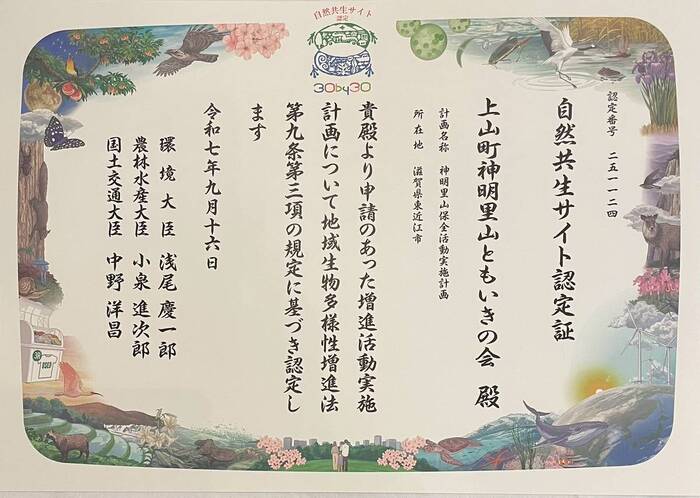 自然共生サイト
認定
30by30
認定番号 二五―一―二四
自然共生サイト認定証
上山町神明里山ともいきの会 殿
計画名称 神明里山保全活動実施計画
所在地 滋賀県東近江市
貴殿より申請のあった増進活動実施
計画について地域生物多様性増進法
第九条第三項の規定に基づき認定し
ます
令和七年九月十六日
環境大臣 浅尾慶一郎
農林水産大臣 小泉進次郎
国土交通大臣 中野洋昌